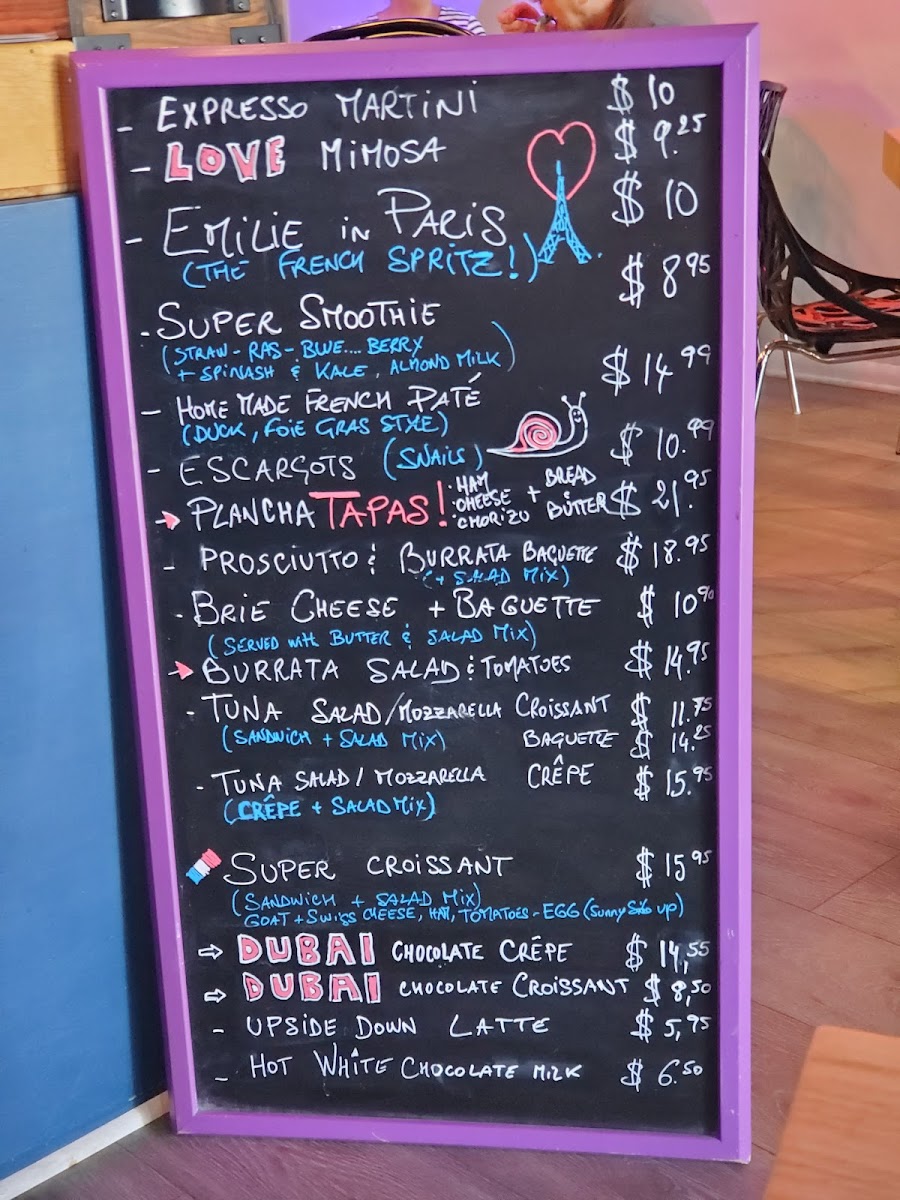 - EXPRESSO MARTINI $ 10
- LOVE MIMOSA $ 9.25
- EMILIE in PARIS $ 10
(THE FRENCH SPRITZ!)
- SUPER SMOOTHIE $ 8.95
(STRAW - RAS - BLUE.... BERRY
+ SPINASH & KALE, ALMOND MILK)
- HOME MADE FRENCH PATÉ $ 14.99
(DUCK, FOIE GRAS STYLE)
- ESCARGOTS (SNAILS) $ 10.99
PLANCHA TAPAS! HAM CHEESE CHORIZO + BREAD & BUTTER $ 21.95
- PROSCIUTTO & BURRATA BAGUETTE $ 18.95
(+ SALAD MIX)
- BRIE CHEESE + BAGUETTE $ 10.90
(SERVED with BUTTER & SALAD MIX)
BURRATA SALAD & TOMATOES $ 14.95
- TUNA SALAD/MOZZARELLA CROISSANT $ 11.75
(SANDWICH + SALAD MIX) BAGUETTE $ 14.25
- TUNA SALAD / MOZZARELLA CRÊPE $ 15.95
(CRÊPE + SALAD MIX)
SUPER CROISSANT $ 15.95
(SANDWICH + SALAD MIX)
GOAT + SWISS CHEESE, HAM, TOMATOES - EGG (Sunny Side up)
⇨ DUBAI CHOCOLATE CRÊPE $ 14,55
⇨ DUBAI CHOCOLATE CROISSANT $ 8,50
- UPSIDE DOWN LATTE $ 5,95
- HOT WHITE CHOCOLATE MILK $ 6.50